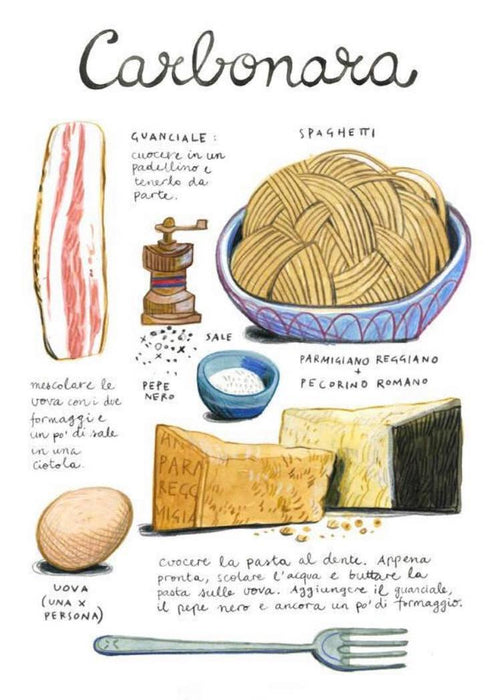 Carbonara
GUANCIALE:
cuocere in un
padellino e
tenerlo da
parte.
SPAGHETTI
SALE
PEPE
NERO
PARMIGIANO REGGIANO
+
PECORINO ROMANO
mescolare le
uova con i due
formaggi e
un po' di sale
in una
ciotola.
PARA
REGG
MIGIA
UOVA
(UNA X
PERSONA)
Cuocere la pasta al dente. Appena
pronta, scolare l'acqua e buttare la
pasta sulle uova. Aggiungere il guanciale,
il pepe nero e ancora un po' di formaggio.